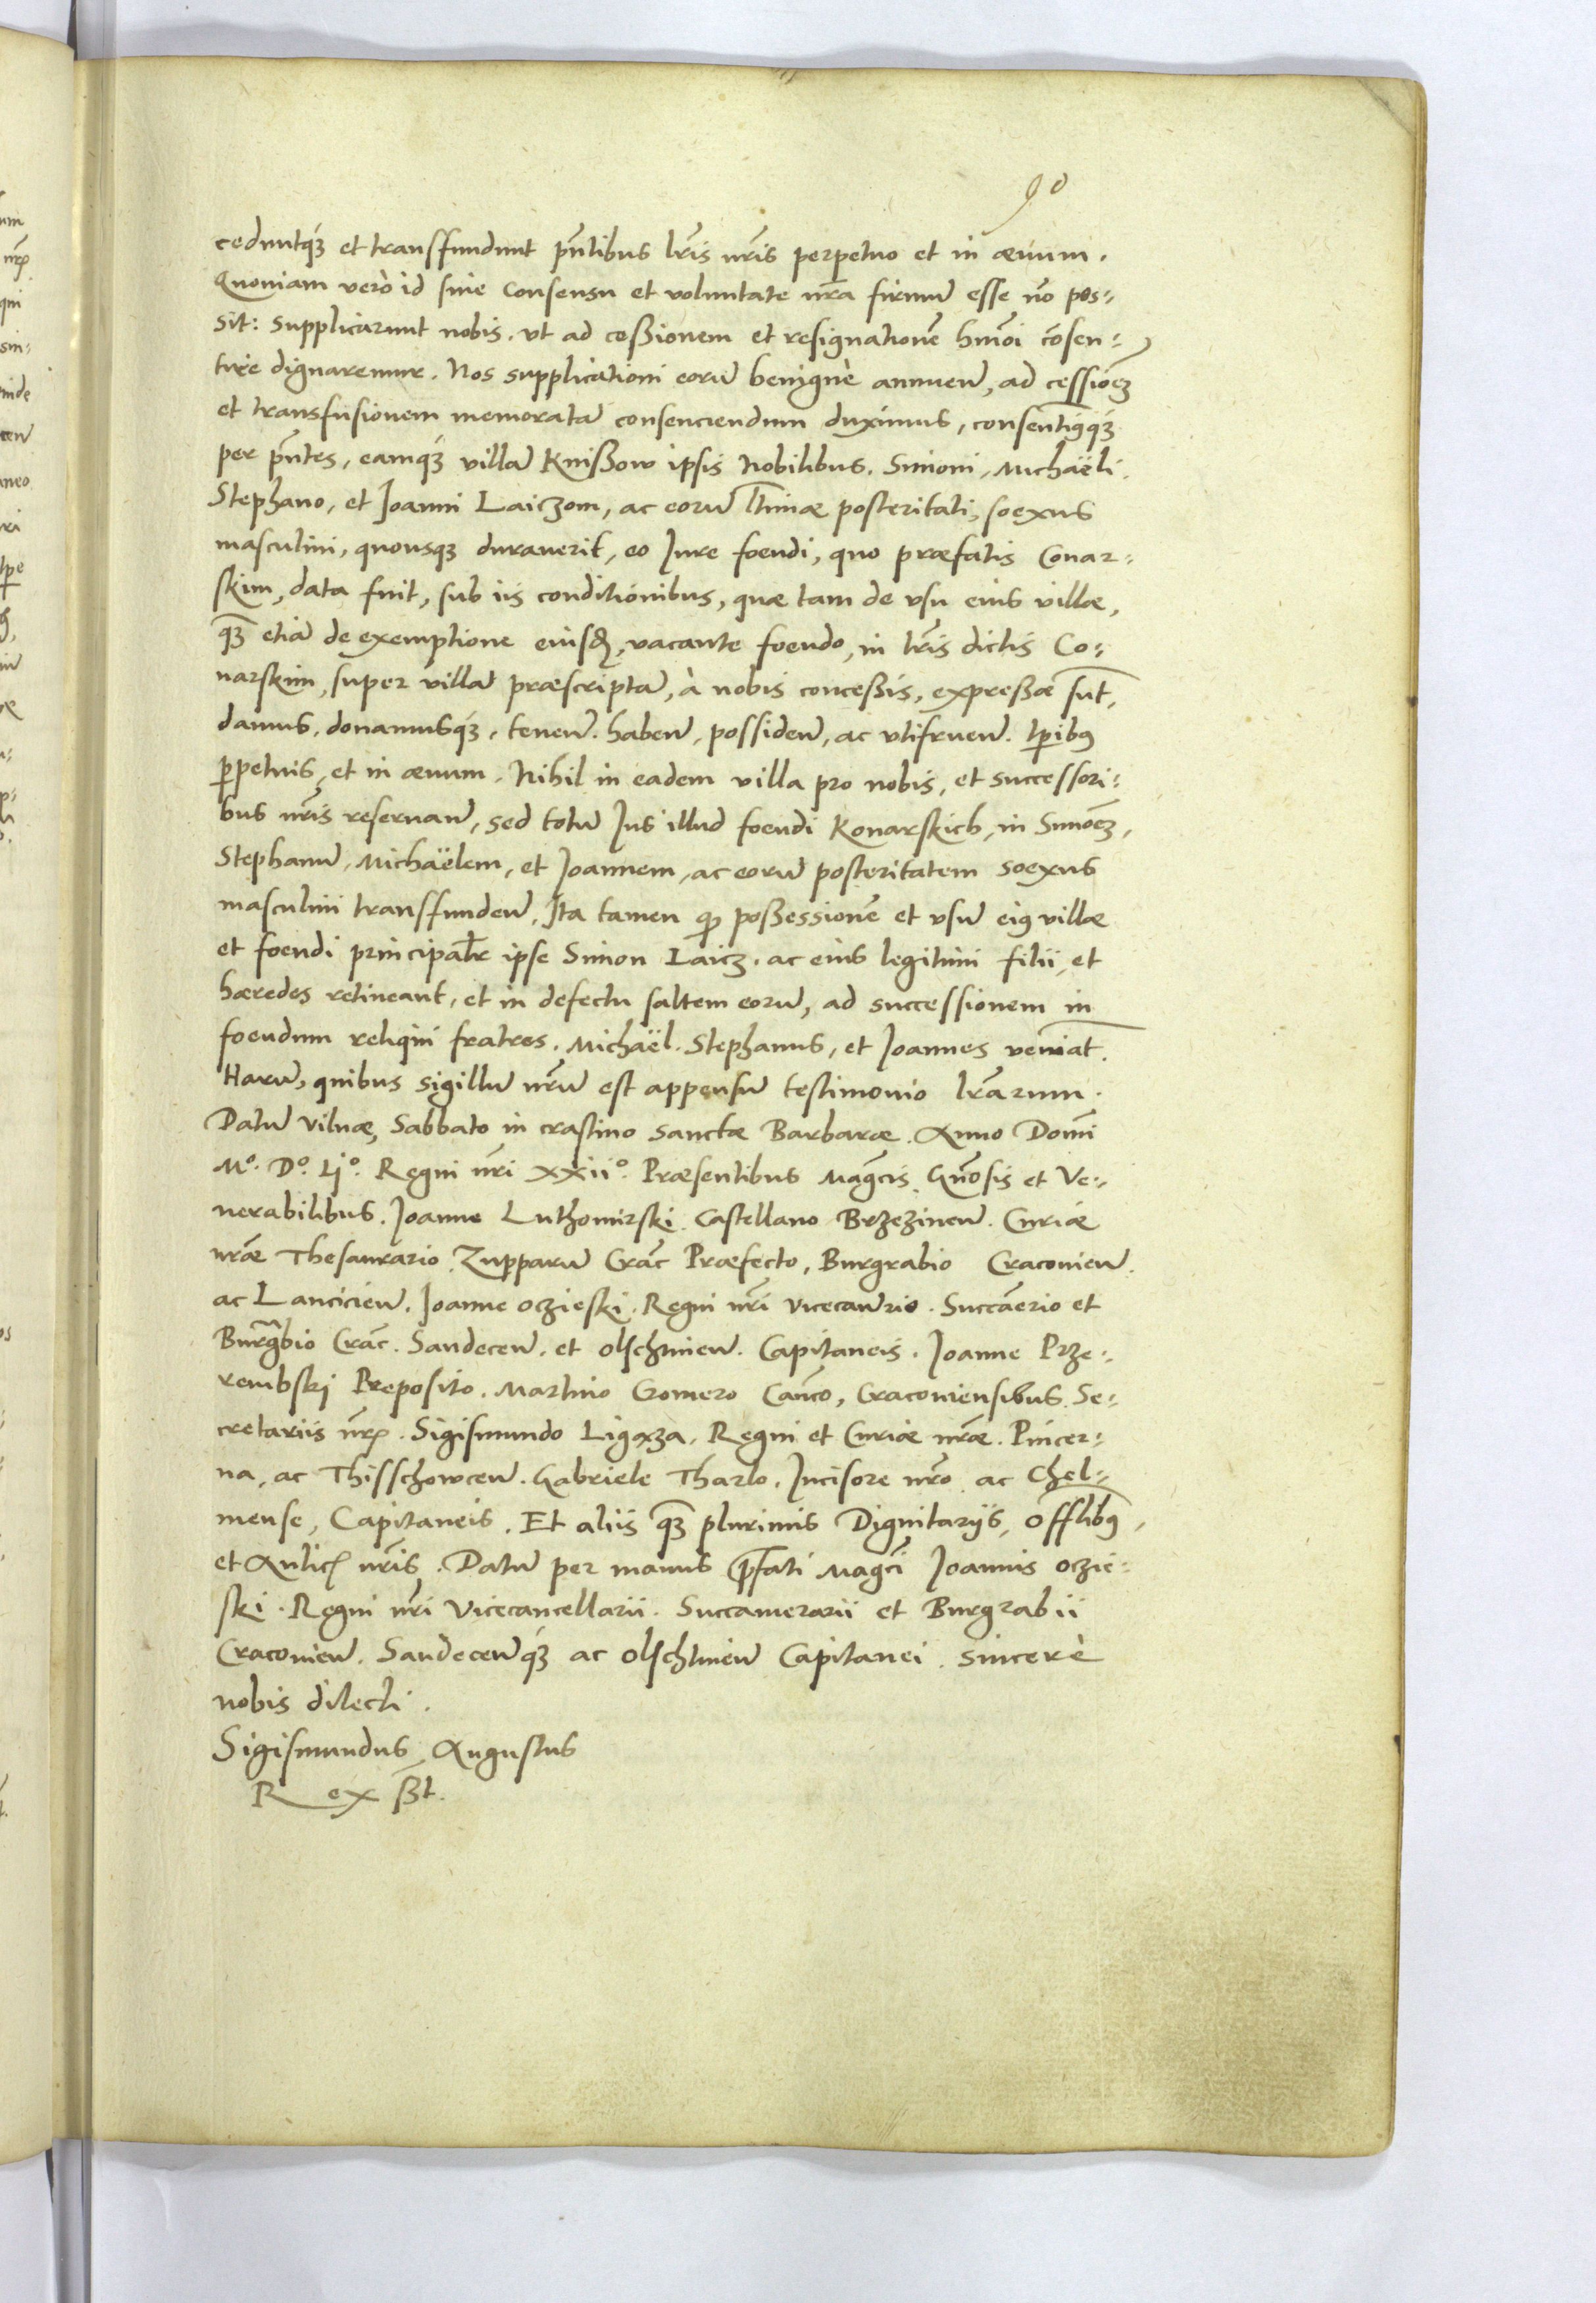 90
ceduntq́ȝ et transfundunt pñtibus lr̃is nr̃is perpetuo et in æuum.
Quoniam verò id sine consensu et voluntate nr̃a firmũ esse nõ pos-
sit: supplicarunt nobis. vt ad ceßionem et resignationẽ hmõi cõsen-
tire dignaremur. Nos supplicationi eorũ benignè annueñ, ad cessioẽȝ
et transfusionem memoratã consenciendum duximus, consentim̃qq́ȝ
per pñtes, eamq́ȝ villã Knißow ipsis Nobilibus. Simoni, Michaëli.
Stephano, et Joanni Laiczom, ac eorũ ltimæ posteritati, soexus
masculini, quousqȝ durauerit, eo Jure foendi, quo præfatis Conar-
skim, data fuit, sub iis conditionibus, quæ tam de vsu eius villæ,
qȝ̃ etiã de exemptione eiusđ, vacante foendo, in lr̃is dictis Co-
narskim, super villã præscriptã, à nobis conceßis, expreßæ sũt,
damus, donamusq́ȝ, teneñ. habeñ, possideñ, ac vtifrueñ. tp̃ibꝰ
ꝑpetuis, et in æuum. Nihil in eadem villa pro nobis, et successori-
bus nr̃is reseruañ, sed totũ Jus illud foendi Konarskich, in Simoẽȝ,
Stephanũ, Michaëlem, et Joannem, ac eorũ posteritatem soexus
masculini transfundeñ, Ita tamen ꝙ poßessionẽ et vsũ eiꝰ villæ
et foendi principalr̃ ipse Simon Laicz, ac eius legitimi filii, et
hæredes retineant, et in defectu saltem eorũ, ad successionem in
foendum reliqui fratres. Michaël. Stephanus, et Joannes veniãt.
Harũ, quibus sigillũ nr̃ũ est appensũ testimonio lr̃arum.
Datũ Vilnæ, Sabbato in crastino sanctæ Barbaræ. Anno Domĩ
Mº. Dº. Ljº. Regni nr̃i xxiiº. Præsentibus Magc̃is, Gñosis et Ve-
nerabilibus. Joanne Luthomirski Castellano Brzezineñ. Curiæ
nr̃æ Thesaurario Zupparũ Crac̃ Præfecto, Burgrabio Cracouieñ.
ac Lancicieñ. Joanne Oczieski. Regni nr̃i Vicecan̄rio. Succãerio et
Burgr̃bio Crac̃. Sandeceñ. et Olschtineñ. Capitaneis. Joanne Prze-
rembskj Preposito. Martino Cromero Canc̃o, Cracouiensibus Se-
cretariis nr̃ꝭ. Sigismundo Ligȩza, Regni et Curiæ nr̃æ. Pincer-
na, ac Thisschoweceñ. Gabriele Tharlo. Incisore nr̃o ac Chel-
mense, Capitaneis. Et aliis qȝ̃ plurimis Dignitarijs, offlibꝰ,
et Aulicꝭ nr̃is. Datũ per manus p̃fati Magc̃i Joannis Oczie-
ski. Regni nr̃i Vicecancellarii. Succamerarii et Burgrabii
Cracouieñ. Sandeceñq́ȝ ac Olschtineñ Capitanei. sincerè
nobis dilecti.
Sigismundus Augustus
Rex ßt.